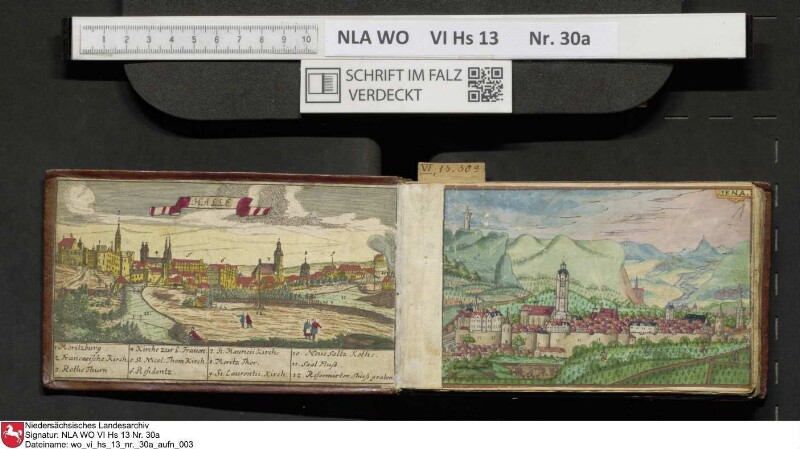 1 2 3 4 5 6 7 8 9 10
NLA WO VI Hs 13 Nr. 30a
SCHRIFT IM FALZ
VERDECKT
VI, 13. 30a
HALLE
IENA.
1 Moritzburg
2 Francoesische Kirch
3 Rothe Thurn
4 Kirche zur L. Frauen
5 S. Nicol. Thom Kirch
6 Residentz
7 S. Mauricii Kirch
8 Moritz Thor
9 St. Laurentii Kirch
10 Neue Saltz Kothe
11 Saal Fluß
12 Reformirten Schieß graben
Niedersächsisches Landesarchiv
Signatur: NLA WO VI Hs 13 Nr. 30a
Dateiname: wo_vi_hs_13_nr._30a_aufn_003